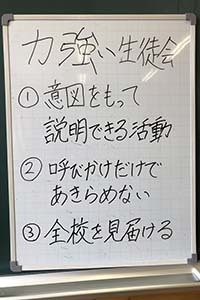 力強い生徒会
① 意図をもって
説明できる活動
② 呼びかけだけで
あきらめない
③ 全校を見届ける